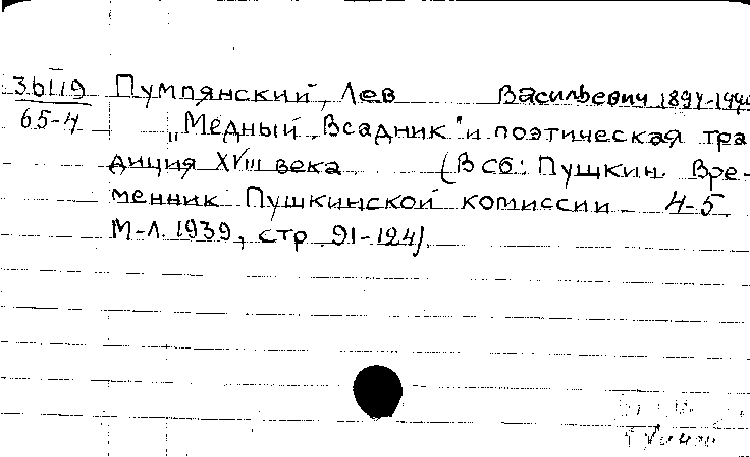 Пумпянский, Лев Васильевич 1894-1940
65-4 „Медный Всадник" и поэтическая тра
диция XVIII века (В сб: Пушкин. Вре-
менник Пушкинской комиссии 4-5
М-Л. 1939, стр 91-124).